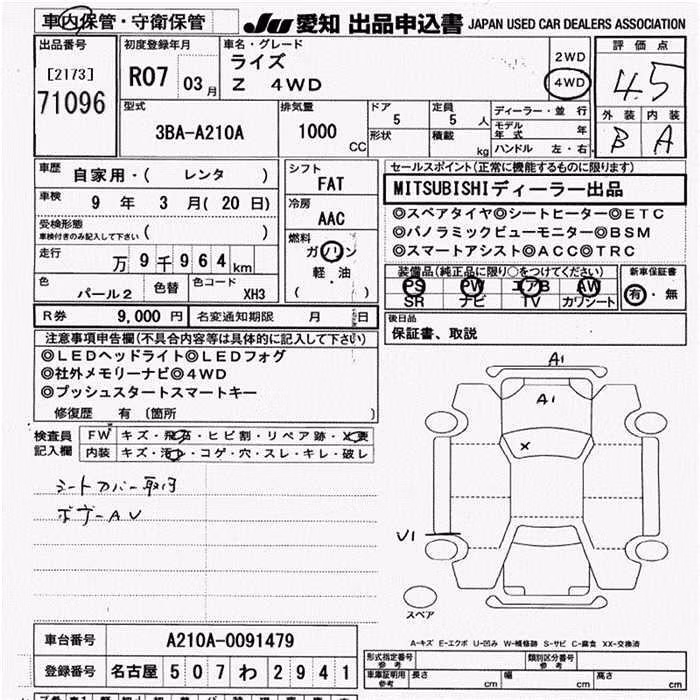 車内保管・守衛保管
JU 愛知 出品申込書 JAPAN USED CAR DEALERS ASSOCIATION
出品番号
[2173]
71096
初度登録年月
R07 03月
車名・グレード
ライズ
Z 4WD
2WD
4WD
評価点
4.5
外装 内装
B A
型式
3BA-A210A
排気量
1000 CC
ドア
5
形状
定員
5 人
積載
kg
ディーラー・並行
モデル年式 年
ハンドル 左・右
車歴 自家用・( レンタ )
車検 9 年 3 月( 20 日)
受検形態
車検付きのみ記入して下さい ( )
走行 万 9 千 9 6 4 km
色 パール2
色替
色コード XH3
シフト
FAT
冷房
AAC
燃料
ガソリン
軽・油
( )
セールスポイント(正常に機能するものに限ります)
MITSUBISHIディーラー出品
◎スペアタイヤ◎シートヒーター◎ETC
◎パノラミックビューモニター◎BSM
◎スマートアシスト◎ACC◎TRC
装備品(純正品に限り○をつけてください)
PS PW エアB AW
SR ナビ TV カワシート
新車保証書
有・無
R券 9,000 円
名変通知期限 月 日
後日品
保証書、取説
注意事項申告欄(不具合内容等は具体的に記入して下さい)
◎LEDヘッドライト◎LEDフォグ
◎社外メモリーナビ◎4WD
◎プッシュスタートスマートキー
修復歴 有 〔箇所 〕
検査員記入欄
FW キズ・飛石・ヒビ割・リペア跡・X要
内装 キズ・汚れ・コゲ・穴・スレ・キレ・破レ
シートカバー取付
A1
A1
X
U1
スペア
A-キズ E-エクボ U-凹み W-補修跡 S-サビ C-腐食 XX-交換済
車台番号 A210A-0091479
登録番号 名古屋 5 0 7 わ 2 9 4 1
形式指定番号 参考
類別区分番号 参考
車庫証明用 参考 長さ cm 幅 cm 高さ cm